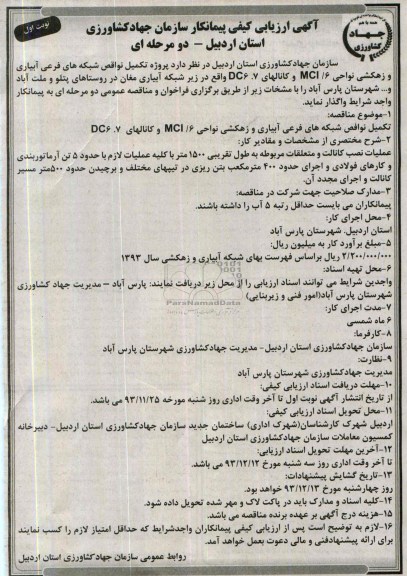 نوبت اول
همه با هم
جهاد
کشاورزی
آگهی ارزیابی کیفی پیمانکار سازمان جهادکشاورزی
استان اردبیل – دو مرحله ای
سازمان جهادکشاورزی استان اردبیل در نظر دارد پروژه تکمیل نواقص شبکه های فرعی آبیاری
و زهکشی نواحی MCI /۶ و کانالهای DC۶ .۷ واقع در زیر شبکه آبیاری مغان در روستاهای پتلو و ملت آباد
و... شهرستان پارس آباد را با مشخات زیر از طریق برگزاری فراخوان و مناقصه عمومی دو مرحله ای به پیمانکار
واجد شرایط واگذار نماید.
۱-موضوع مناقصه:
تکمیل نواقص شبکه های فرعی آبیاری و زهکشی نواحی MCI /۶ و کانالهای DC۶ .۷
۲-شرح مختصری از مشخصات و مقادیر کار:
عملیات نصب کانالت و متعلقات مربوطه به طول تقریبی ۱۵۰۰ متر با کلیه عملیات لازم با حدود ۵ تن آرماتوربندی
و کارهای فولادی و اجرای حدود ۴۰۰ مترمکعب بتن ریزی در تیپهای مختلف و برچیدن حدود ۵۰۰متر مسیر
کانالت و اجرای مجدد آن.
۳-مدارک صلاحیت جهت شرکت در مناقصه:
پیمانکاران می بایست حداقل رتبه ۵ آب را داشته باشند.
۴-محل اجرای کار:
استان اردبیل. شهرستان پارس آباد
۵-مبلغ برآورد کار به میلیون ریال:
۲/۲۰۰/۰۰۰/۰۰۰ ریال براساس فهرست بهای شبکه آبیاری و زهکشی سال ۱۳۹۳
۶-محل تهیه اسناد:
واجدین شرایط می توانند اسناد ارزیابی را از محل زیر دریافت نمایند: پارس آباد – مدیریت جهاد کشاورزی
شهرستان پارس آباد(امور فنی و زیربنایی)
ParsNamadData
۷-مدت اجرای کار:
۶ ماه شمسی
۸-کارفرما:
سازمان جهادکشاورزی استان اردبیل- مدیریت جهادکشاورزی شهرستان پارس آباد
۹-نظارت:
مدیریت جهادکشاورزی شهرستان پارس آباد
۱۰-مهلت دریافت اسناد ارزیابی کیفی:
از تاریخ انتشار آگهی نوبت اول تا آخر وقت اداری روز شنبه مورخه ۹۳/۱۱/۲۵ می باشد.
۱۱-محل تحویل اسناد ارزیابی کیفی:
اردبیل شهرک کارشناسان(شهرک اداری) ساختمان جدید سازمان جهادکشاورزی استان اردبیل- دبیرخانه
کمسیون معاملات سازمان جهادکشاورزی استان اردبیل
۱۲-آخرین مهلت تحویل اسناد ارزیابی:
تا آخر وقت اداری روز سه شنبه مورخ ۹۳/۱۲/۱۲ می باشد.
۱۳-تاریخ گشایش پیشنهادات:
روز چهارشنبه مورخ ۹۳/۱۲/۱۳ خواهد بود.
۱۴-کلیه اسناد و مدارک باید در پاکت لاک و مهر شده تحویل داده شود.
۱۵-هزینه درج آگهی بر عهده برنده مناقصه می باشد.
۱۶-لازم به توضیح است پس از ارزیابی کیفی پیمانکاران واجدشرایط که حداقل امتیاز لازم را کسب نمایند
برای ارائه پیشنهادفنی و مالی دعوت بعمل خواهد آمد.
روابط عمومی سازمان جهادکشاورزی استان اردبیل